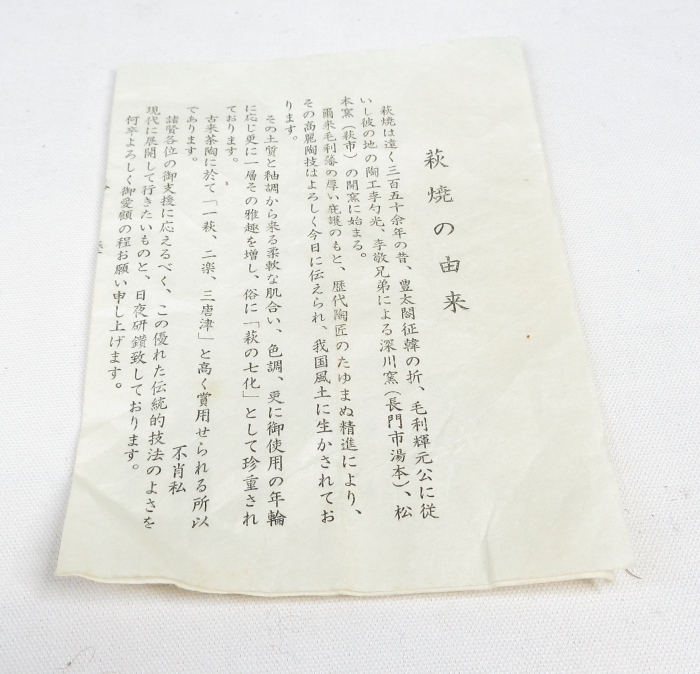 萩焼の由来
萩焼は遠く三百五十余年の昔、豊太閤征韓の折、毛利輝元公に従
いし彼の地の陶工李勺光、李敬兄弟による深川窯(長門市湯本)、松
本窯(萩市)の開窯に始まる。
爾来毛利藩の厚い庇護のもと、歴代陶匠のたゆまぬ精進により、
その高麗陶技はよろしく今日に伝えられ、我国風土に生かされてお
ります。
その土質と釉調から来る柔軟な肌合い、色調、更に御使用の年輪
に応じ更に一層その雅趣を増し、俗に「萩の七化」として珍重され
ております。
古来茶陶に於て「一萩、二楽、三唐津」と高く賞用せられる所以
であります。
不肖私
諸賢各位の御支援に応えるべく、この優れた伝統的技法のよさを
現代に展開して行きたいものと、日夜研鑽致しております。
何卒よろしく御愛顧の程お願い申し上げます。